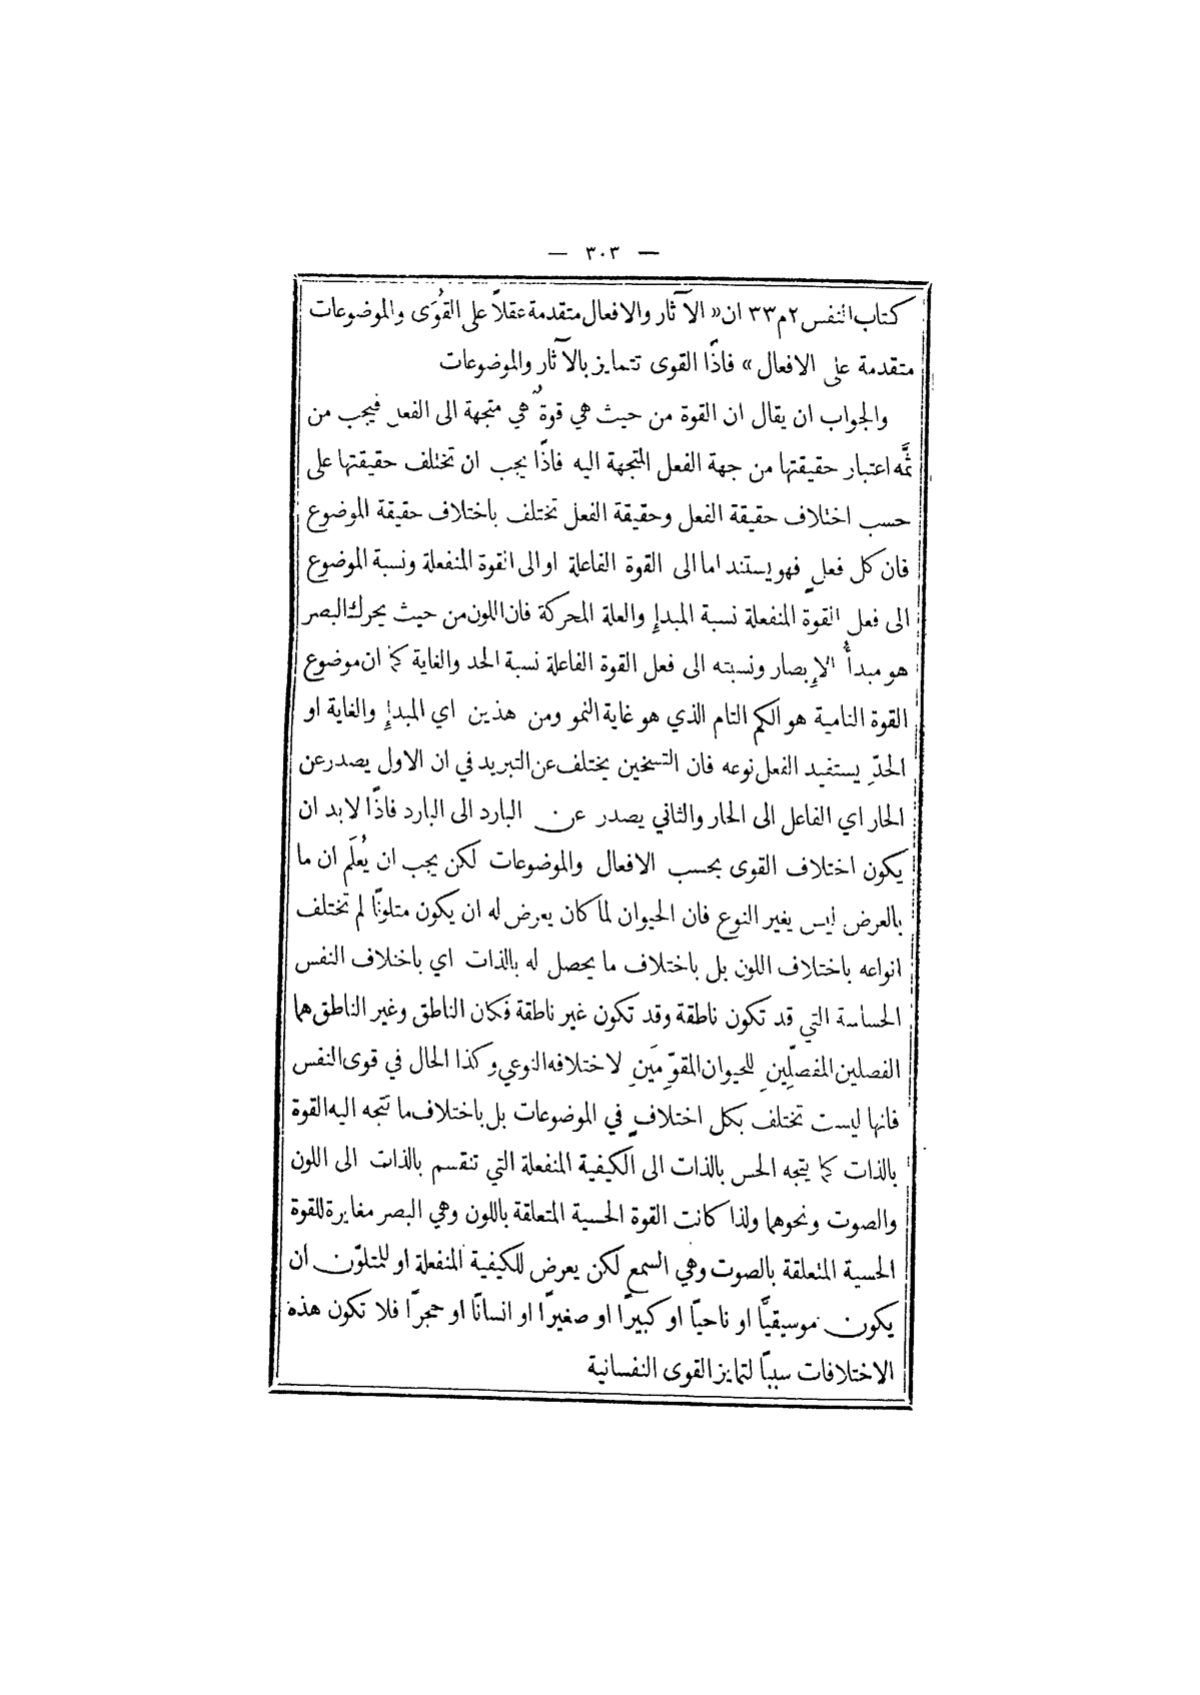 — ٣٠٣ —
كتاب النفس ٢ م ٣٣ ان « الآثار والافعال متقدمة عقلاً على القُوَى والموضوعات
متقدمة على الافعال » فاذًا القوى تتمايز بالآثار والموضوعات
والجواب ان يقال ان القوة من حيث هي قوةٌ هي متجهة الى الفعل فيجب من
ثَمَّه اعتبار حقيقتها من جهة الفعل المتجهة اليه فاذًا يجب ان تختلف حقيقتها على
حسب اختلاف حقيقة الفعل وحقيقة الفعل تختلف باختلاف حقيقة الموضوع
فان كل فعلٍ فهو يستند اما الى القوة الفاعلة او الى القوة المنفعلة ونسبة الموضوع
الى فعل القوة المنفعلة نسبة المبدإِ والعلة المحركة فان اللون من حيث يحرك البصر
هو مبدأُ الإِبصار ونسبته الى فعل القوة الفاعلة نسبة الحد والغاية كما ان موضوع
القوة النامية هو الكم التام الذي هو غاية النمو ومن هذين اي المبدإِ والغاية او
الحدّ يستفيد الفعل نوعه فان التسخين يختلف عن التبريد في ان الاول يصدر عن
الحار اي الفاعل الى الحار والثاني يصدر عن البارد الى البارد فاذًا لا بد ان
يكون اختلاف القوى بحسب الافعال والموضوعات لكن يجب ان يُعلَم ان ما
بالعرض ليس يغير النوع فان الحيوان لما كان يعرض له ان يكون متلونًا لم تختلف
انواعه باختلاف اللون بل باختلاف ما يحصل له بالذات اي باختلاف النفس
الحساسة التي قد تكون ناطقة وقد تكون غير ناطقة فكان الناطق وغير الناطق هما
الفصلين المفصّلَينِ للحيوان المقوّمَينِ لاختلافه النوعي وكذا الحال في قوى النفس
فانها ليست تختلف بكل اختلافٍ في الموضوعات بل باختلاف ما تتجه اليه القوة
بالذات كما يتجه الحس بالذات الى الكيفية المنفعلة التي تنقسم بالذات الى اللون
والصوت ونحوهما ولذا كانت القوة الحسية المتعلقة باللون وهي البصر مغايرة للقوة
الحسية المتعلقة بالصوت وهي السمع لكن يعرض للكيفية المنفعلة او للمتلوّن ان
يكون موسيقيًّا او ناحيًا او كبيرًا او صغيرًا او انسانًا او حجرًا فلا تكون هذه
الاختلافات سببًا لتمايز القوى النفسانية